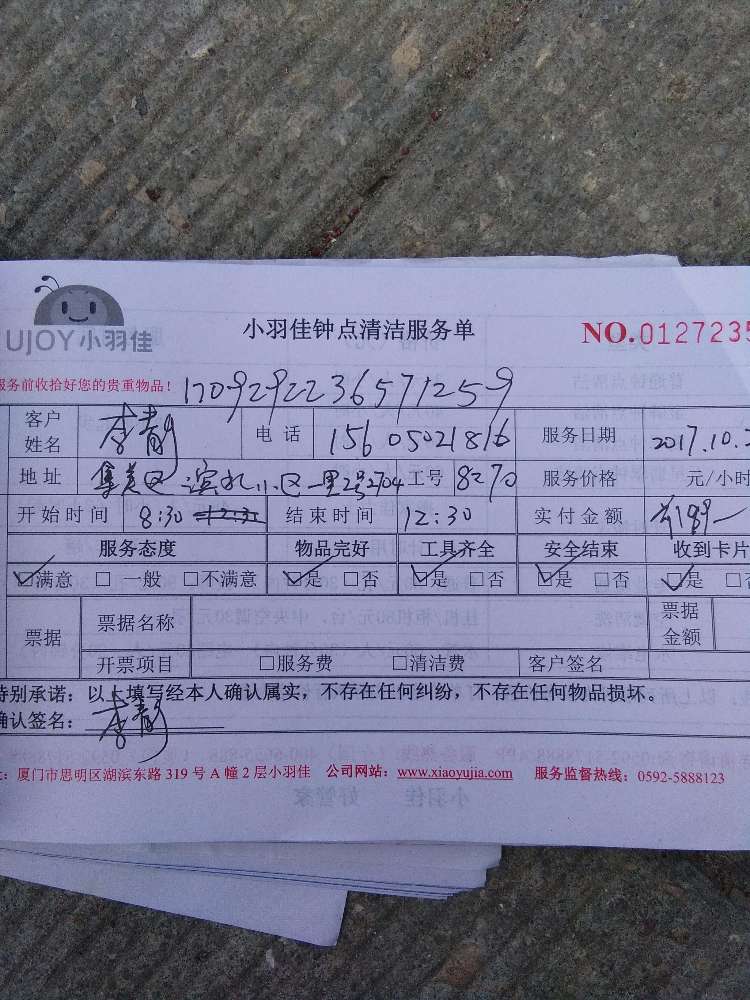 UJOY小羽佳 小羽佳钟点清洁服务单 NO.0127235
服务前收拾好您的贵重物品! 1709292236571259
客户姓名 李静 电话 15605021816 服务日期 2017.10.2
地址 集美区滨水小区一里2号2704 工号 8270 服务价格 元/小时
开始时间 8:30 结束时间 12:30 实付金额 189
服务态度 物品完好 工具齐全 安全结束 收到卡片
☑满意 □一般 □不满意 ☑是 □否 ☑是 □否 ☑是 □否 ☑是 □否
票据 票据名称 票据金额
开票项目 □服务费 □清洁费 客户签名
特别承诺:以上填写经本人确认属实,不存在任何纠纷,不存在任何物品损坏。
确认签名: 李静
厦门市思明区湖滨东路 319 号 A 幢 2 层小羽佳 公司网站:www.xiaoyujia.com 服务监督热线:0592-5888123